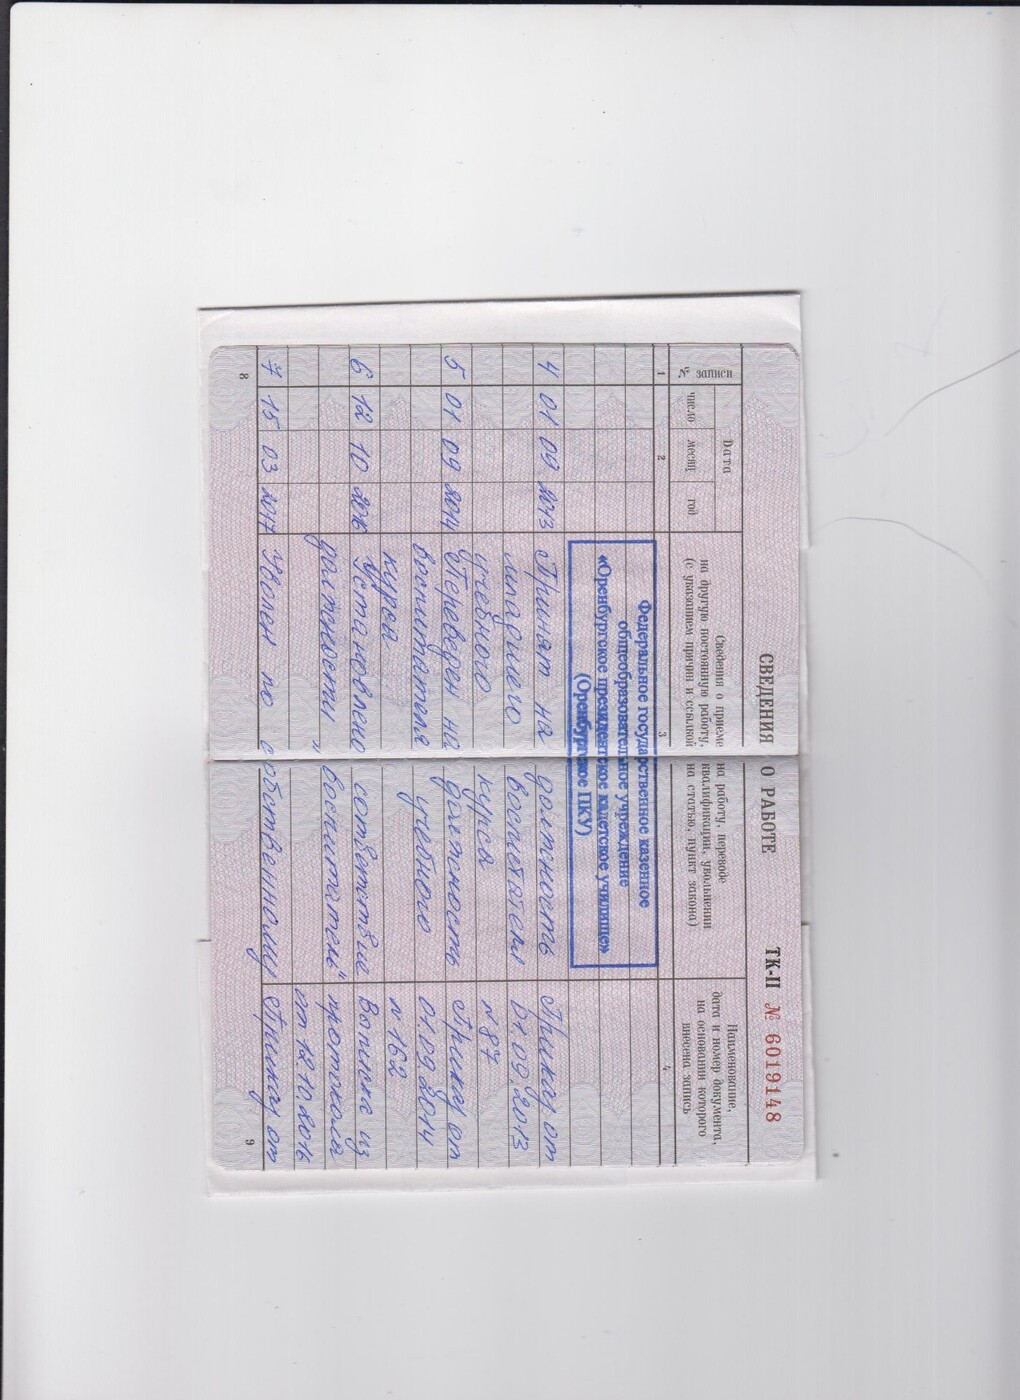 СВЕДЕНИЯ О РАБОТЕ
ТК-II № 6019148
№ записи
Дата
число
месяц
год
Сведения о приеме на работу, переводе
на другую постоянную работу, квалификации, увольнении
(с указанием причин и ссылкой на статью, пункт закона)
Наименование,
дата и номер документа,
на основании которого
внесена запись
1 2 3 4
Федеральное государственное казенное
общеобразовательное учреждение
«Оренбургское президентское кадетское училище»
(Оренбургское ПКУ)
4 01 09 2013 Принят на должность Приказ от
младшего воспитателя 01.09.2013
учебного курса N 87
5 01 09 2014 Переведен на должность Приказ от
воспитателя учебного 01.09.2014
курса N 162
6 12 10 2016 Установлено соответствие Выписка из
должности „воспитатель" протокола
от 12.10.2016
7 15 03 2017 Уволен по собственному Приказ от
8
9